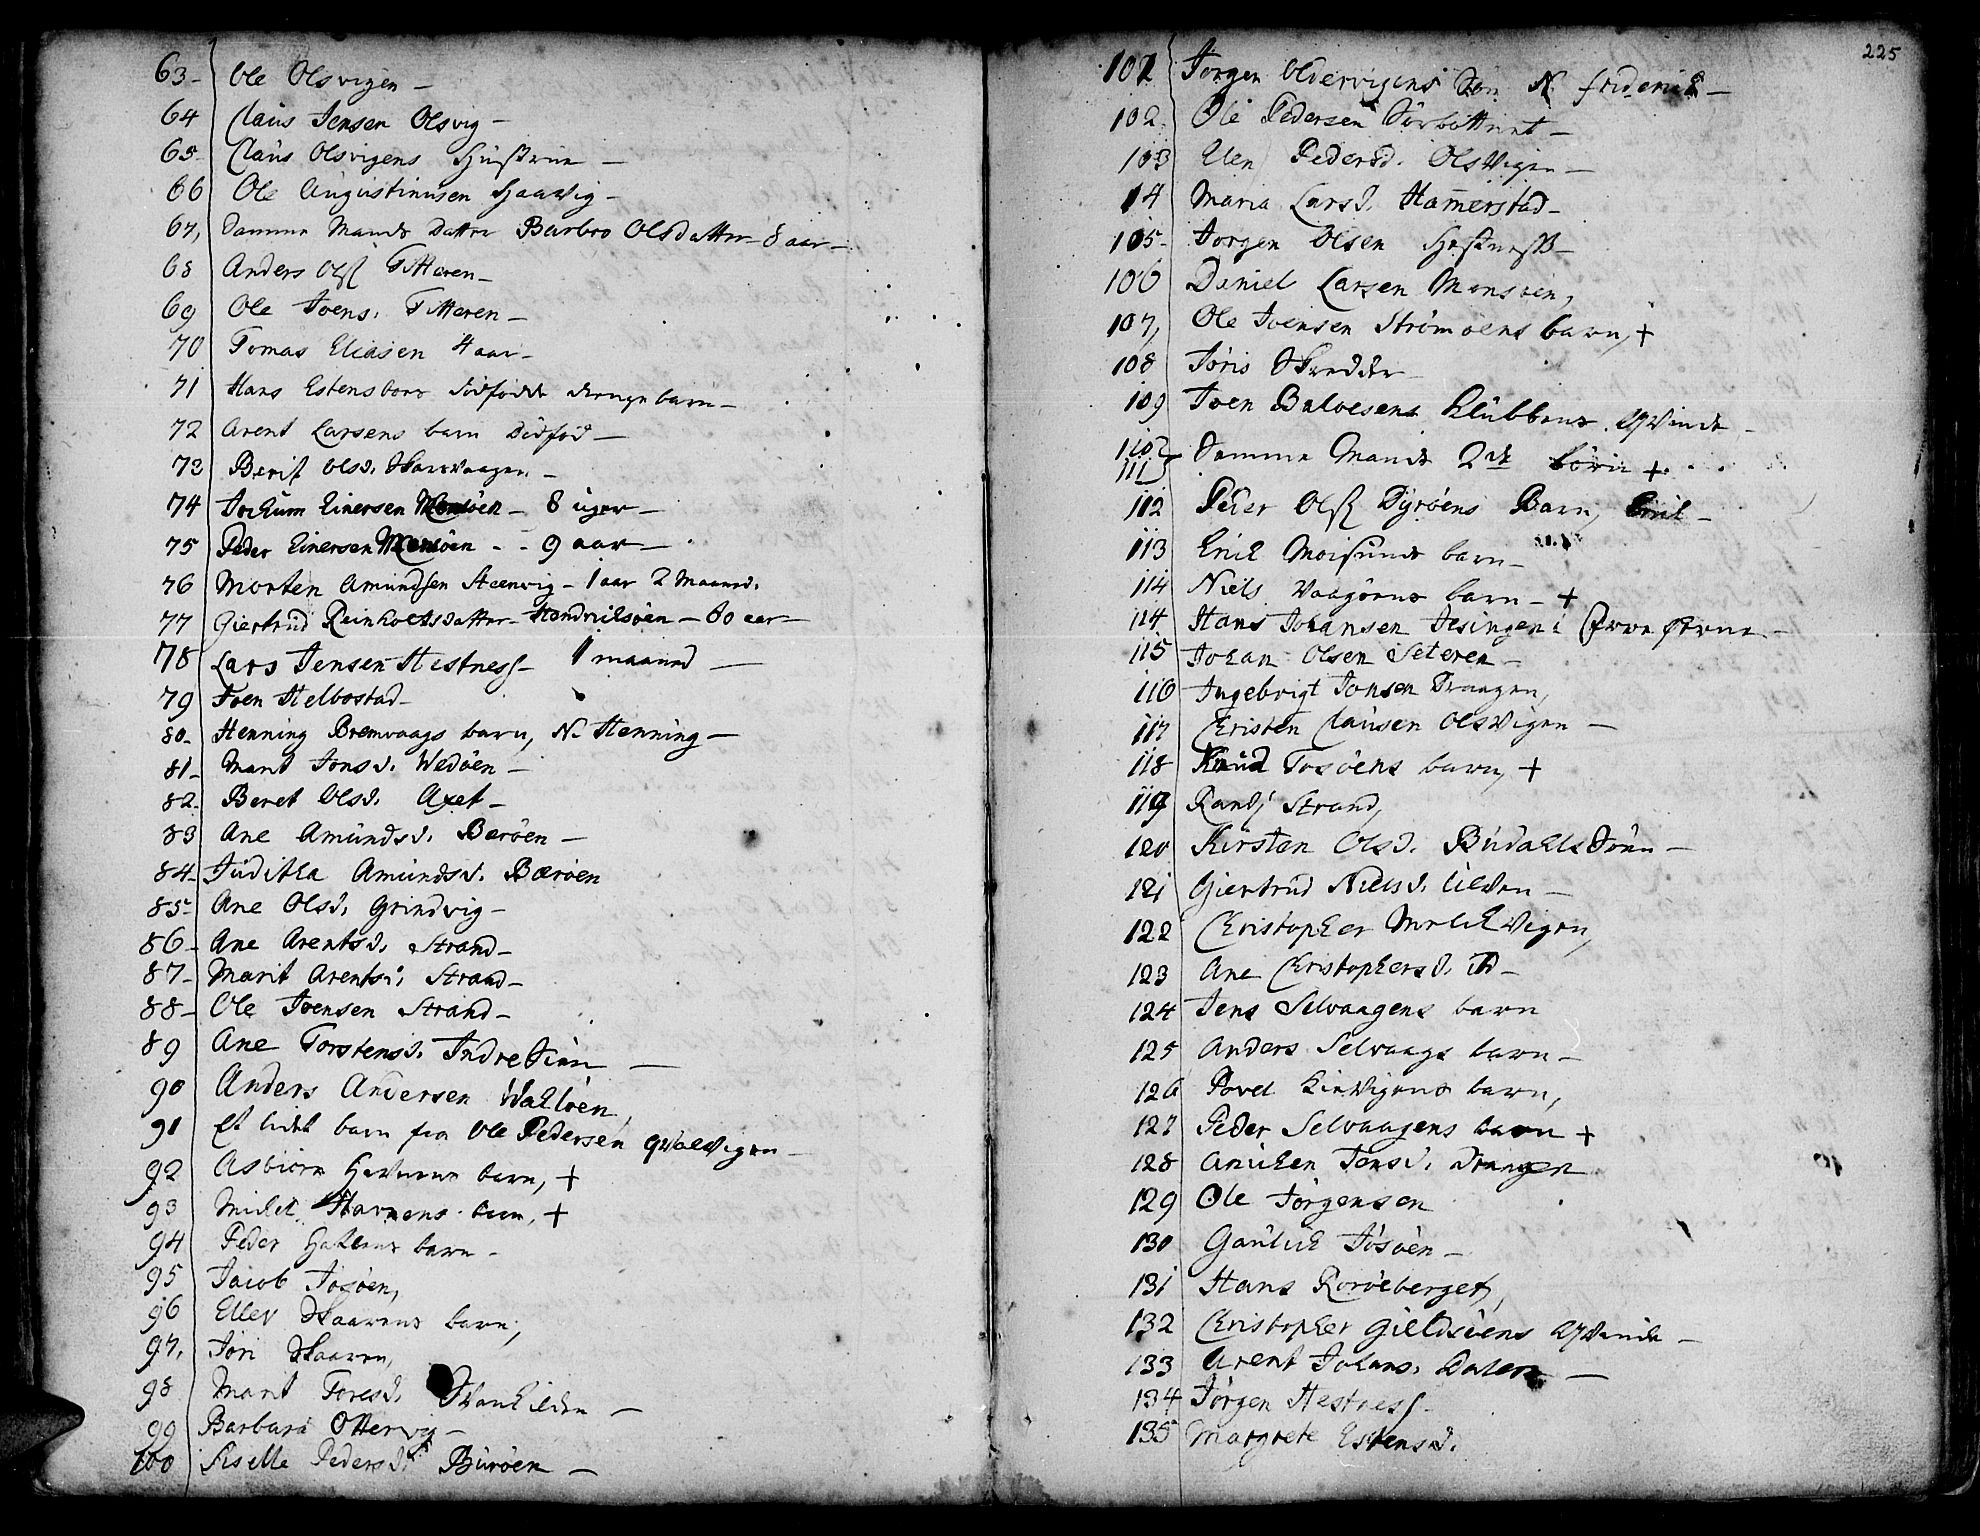 63- Ole Olsvigen -
64 Claus Jensen Olsvig -
65- Claus Olsvigens Hustrue -
66 Ole Augustinusen Haavig -
67, Samme Mands Datter Barbro Olsdatter 8 aar -
68 Anders Ols Titteren -
69 Ole Joens. Titteren -
70 Tomas Eliasen 4 aar -
71 Hans Estensbors dødfødde drenge barn -
72 Arent Larsens barn Dødfød -
73 Berit Olsd. -
74 Jochum Einersen Monsöen - 8 uger -
75 Peder Einersen Monsöen - - 9 aar -
76 Morten Amundsen Steenvig - 1 aar 2 Maaned.
77 Giertrud Reinholtsdatter Hendrichsöen - 60 aar -
78 Lars Jensen Hestness - 1 maaned -
79 Joen Helbostad -
80- Henning Bremvaags barn, N. Henning -
81- Marit Jonsd. Wedöen -
82- Beret Olsd. Axet -
83 Ane Amundsd. Beröen -
84- Juditha Amundsd. Beröen
85- Ane Olsd. Grindvig -
86- Ane Arentsd. Strand -
87- Marit Arentsd. Strand -
88- Ole Joensen Strand -
89 Ane Torstensd. Indre -
90 Anders Andersen Wahlöen,
91 Et lidet barn fra Ole Pedersen Qvalvigen -
92 Asbiörn barn, +
93 Michel Havnens barn, +
94 Peder barn -
95 Jacob Josöen,
96 Ellev Skaarens barn,
97, Jöri Skaaren,
98 Marit Toresd. -
99 Barbara Ottervig -
100 Siselle Pedersd. Buröen -
225
101 Jörgen Oldervigens Sön N. friderich -
102 Ole Pedersen -
103 Elen Pedersd. Olsvigen -
14 Maria Larsd. Hamerstad -
105- Jörgen Olsen -
106 Daniel Larsen Monsöen,
107, Ole Joensen Strömöens barn, +
108 Jöris -
109 Joen Baloesens Klubbens Qvinde -
110
111 Samme Mands 2de börn +
112 Peder Ols Dyröens Barn, -
113 Erich Moisunds barn -
114 Niels Vaagöens barn - +
114 Hans Johansen -
115 Johan Olsen Seteren -
116 Ingebrigt Jonsen Draagen,
117 Christen Clausen Olsvigen -
118 Knud Tosöens barn, +
119 Randj Strand,
120 Kirsten Olsd. -
121 Giertrud Nielsd. Ulven -
122 Christopher,
123 Ane Christophersd. ib -
124 Jens Selvaagens barn
125 Anders Selvaags barn -
126 Povel barn,
127 Peder Selvaagens barn +
128 Anichen Jonsd. Draagen
129 Ole Jörgensen
130 Josöen -
131 Hans Roröeberget,
132 Christopher Gieldsöens Qvinde -
133 Arent Johans. Dalen -
134 Jörgen Hestness -
135 Margrete Estensd.